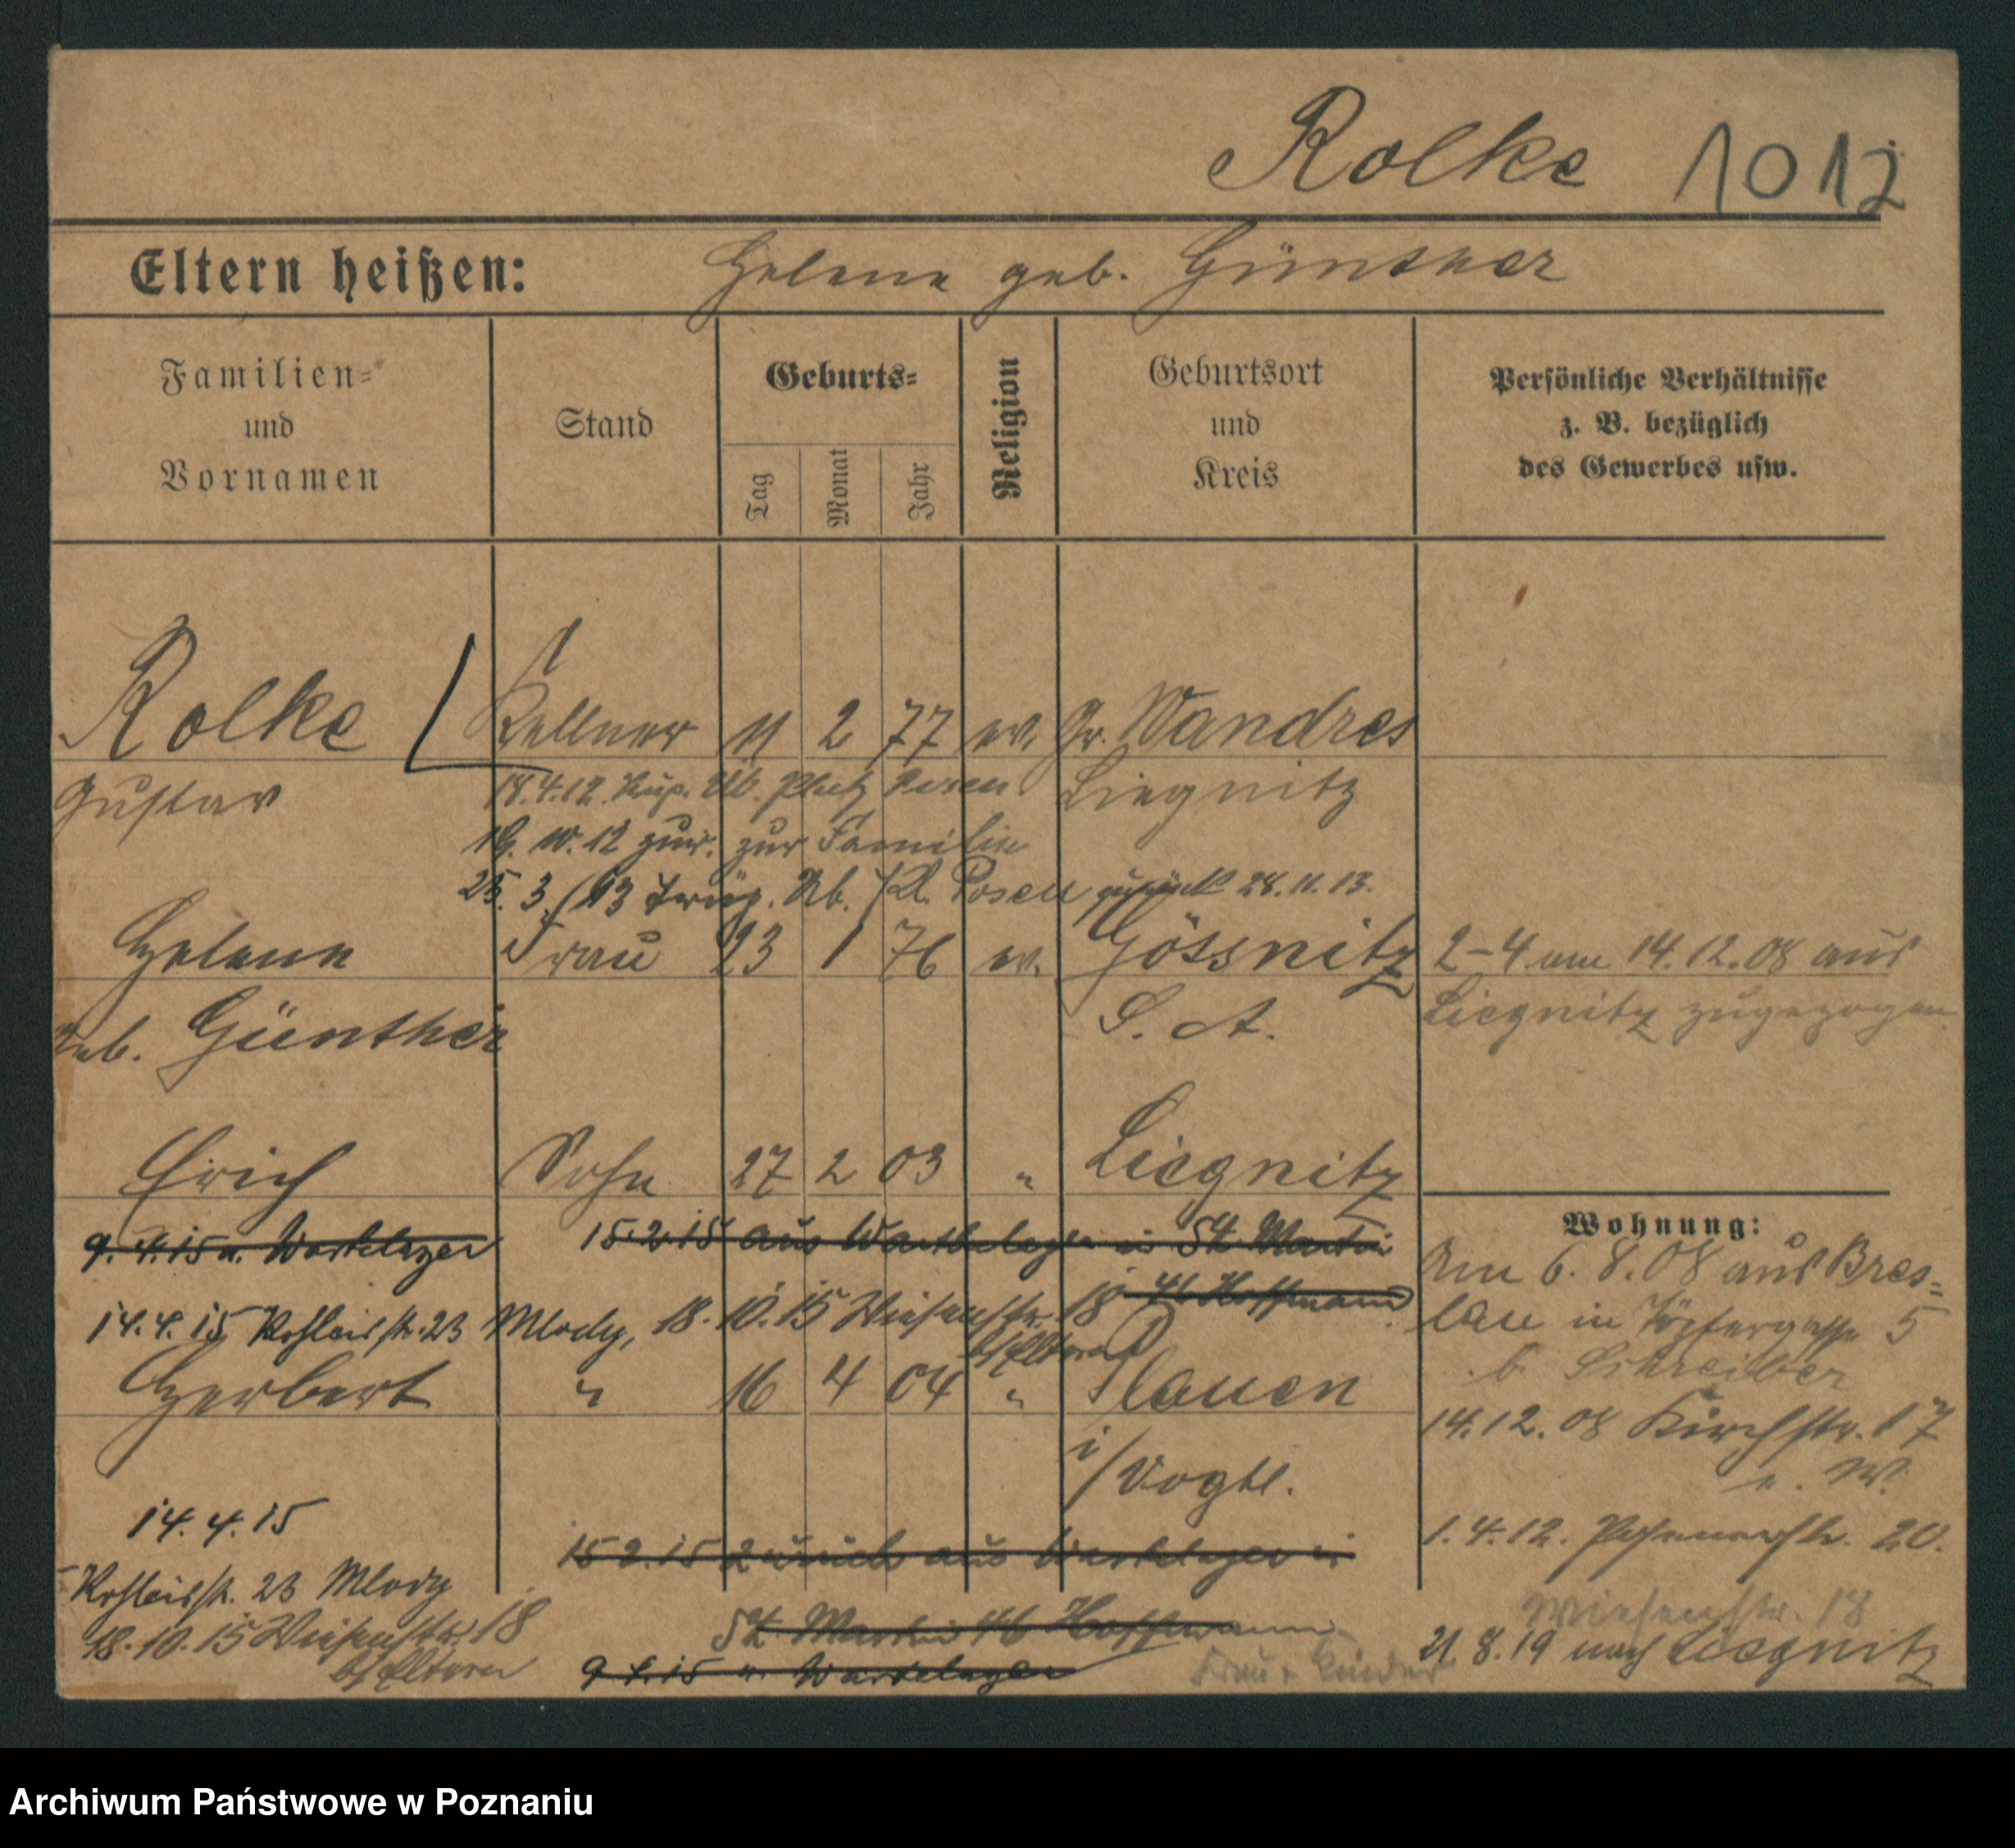 Rolke 1012
Eltern heißen: Helene geb. Günther
Familien-
und
Vornamen
Stand
Geburts-
Tag
Monat
Jahr
Religion
Geburtsort
und
Kreis
Persönliche Verhältnisse
z. B. bezüglich
des Gewerbes usw.
Rolke Kellner 11 2 77 ev. Gr. Wandres
Gustav Liegnitz
18.4.12. Üb. Platz Posen
10.12 zur. zur Familie
25.3.13 Üb. Pl. Posen zurück 28.11.13.
Helene Frau 23 1 76 ev. Gössnitz
geb. Günther S. A.
2-4 am 14.12.08 aus
Liegnitz zugezogen
Erich Sohn 27 2 03 " Liegnitz
9.4.15 n. Warthelager 15.2.15 aus Warthelager in St. Martin
41 Hoffmann
14.4.15 str. 23 Mlody, 18.10.15 Wiesenstr. 18
b/ Eltern
Herbert " 16 4 04 " Plauen
i/Vogtl.
14.4.15
str. 23 Mlody
18.10.15 Wiesenstr. 18
b/ Eltern
15.2.15 zurück aus Warthelager in
St. Martin Hoffmann
9.4.15 n. Warthelager
Frau + Kinder
Wohnung:
Am 6.8.08 aus Bres-
lau in Töpfergasse 5
b. Schreiber
14.12.08 Kirchstr. 17
e. W.
1.4.12. Posenerstr. 20.
Wiesenstr. 18
21.8.19 nach Liegnitz
Archiwum Państwowe w Poznaniu